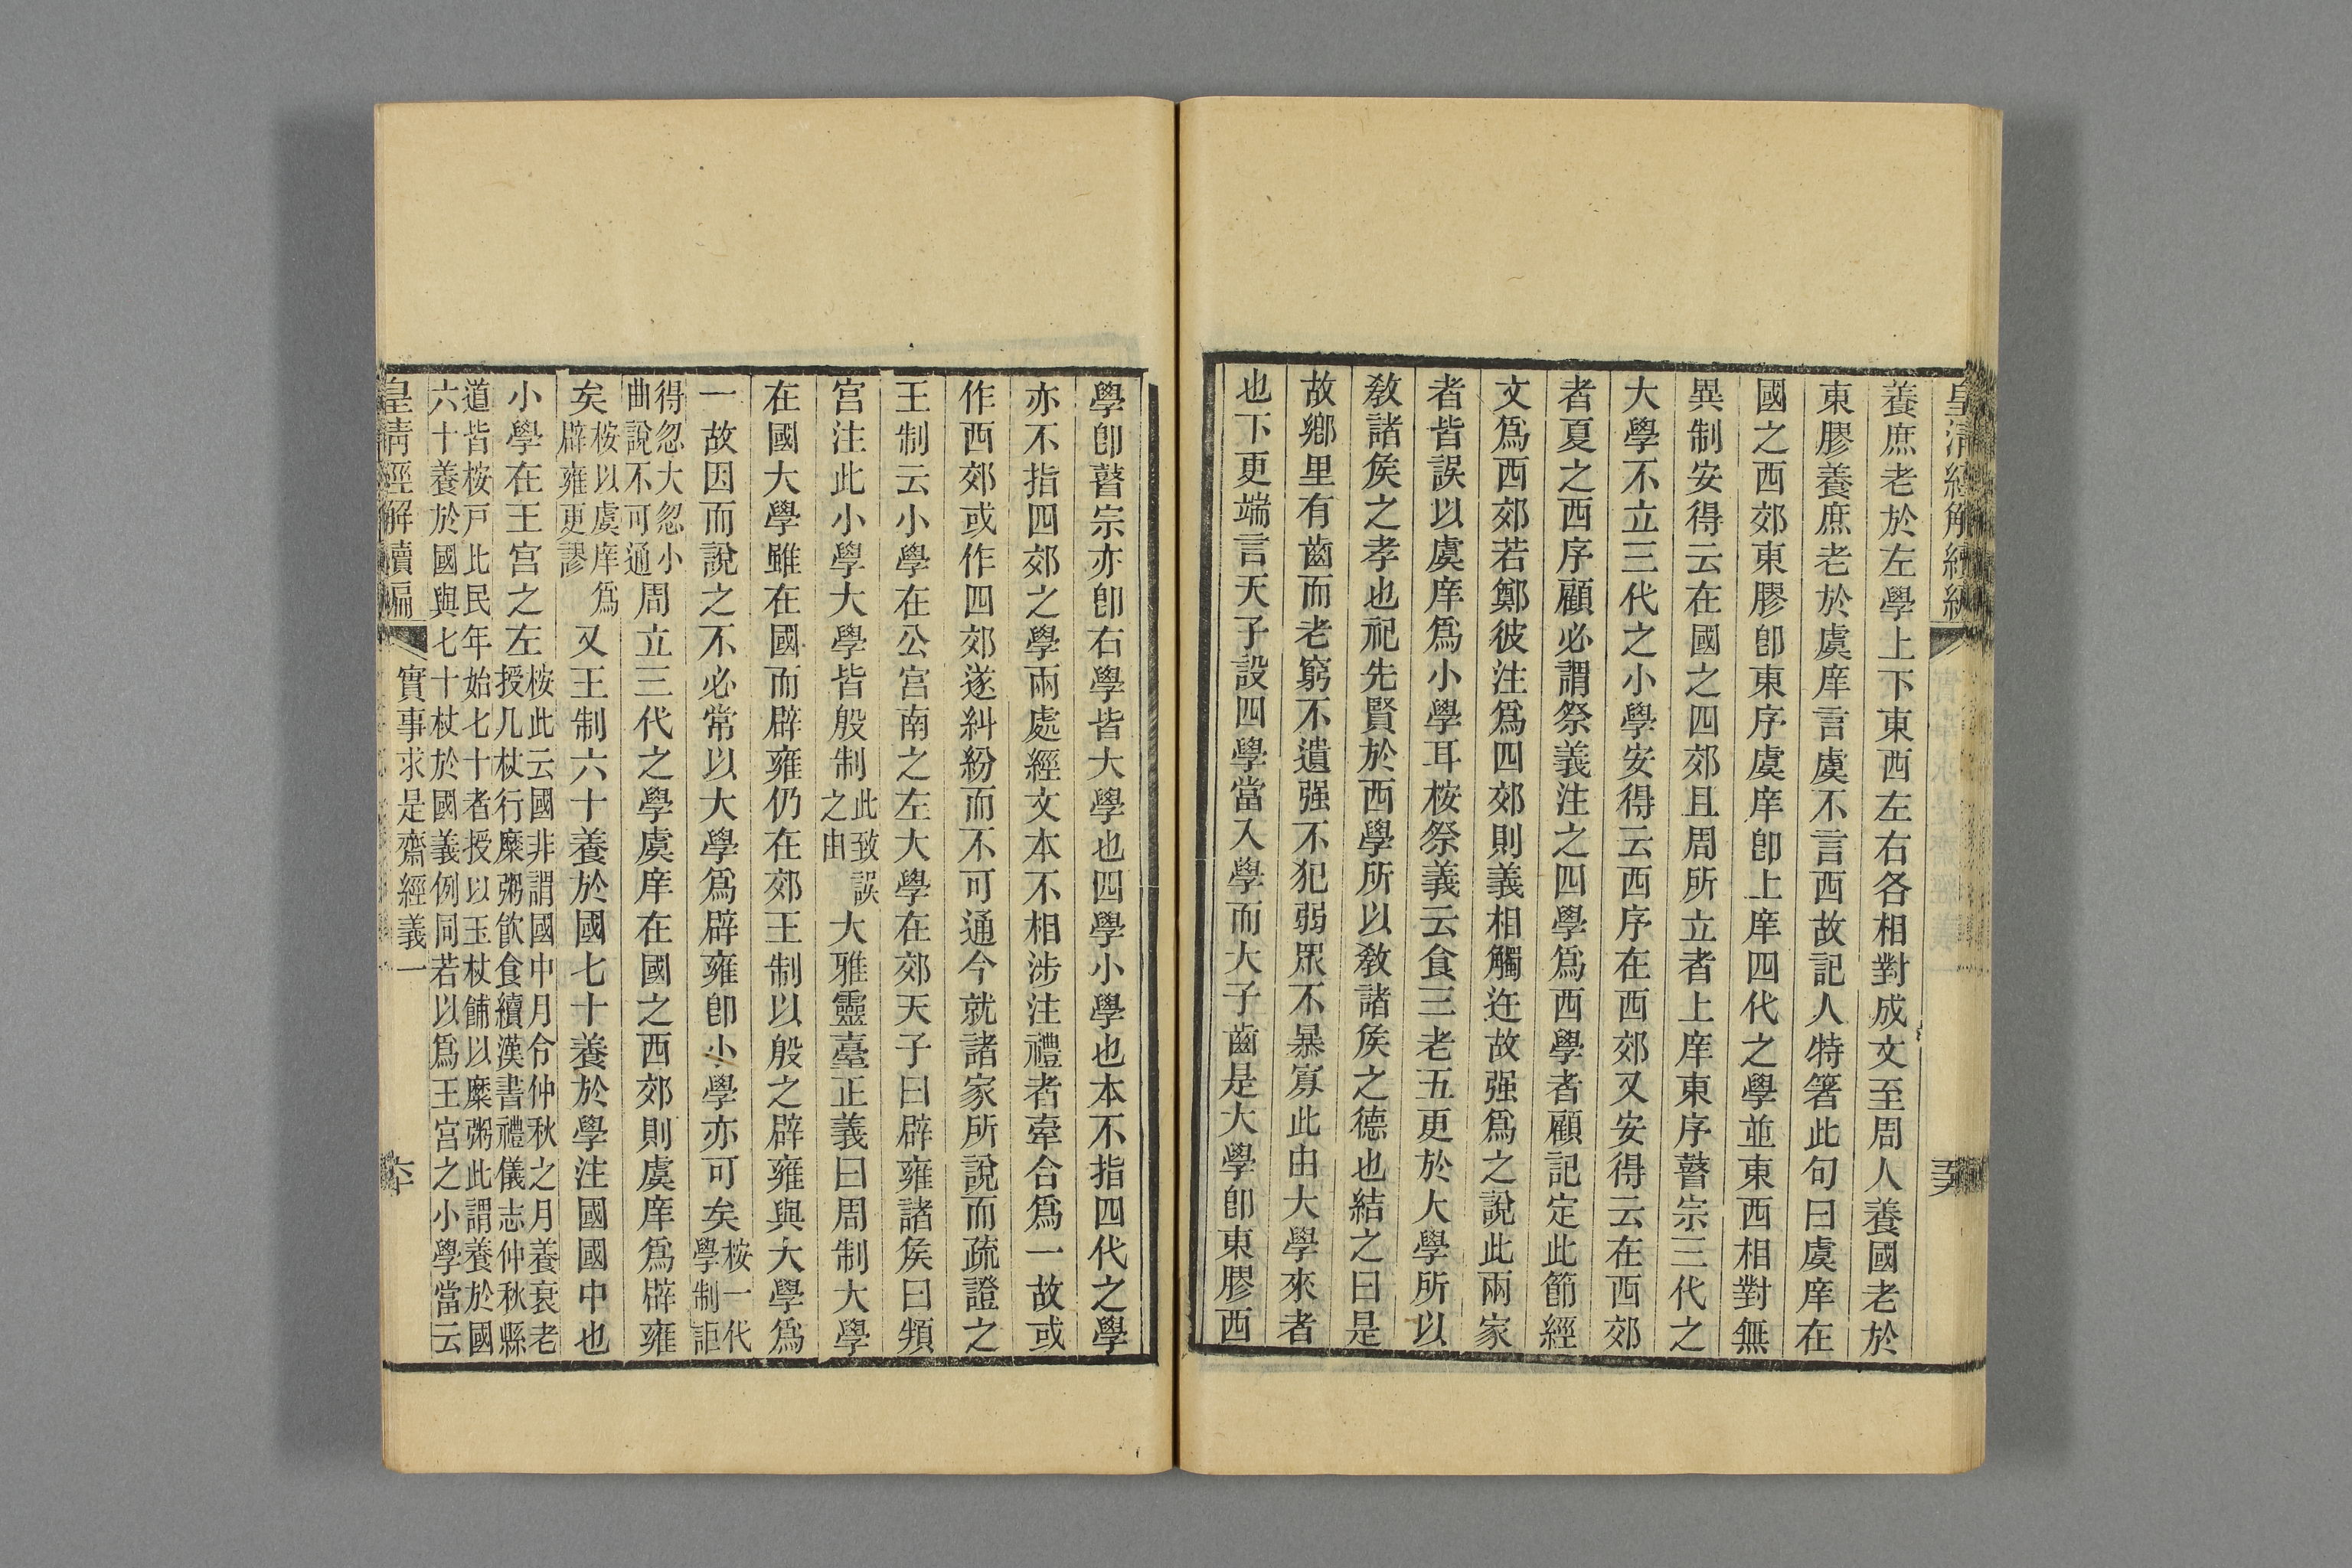 養庶老於左學上下東西左右各相對成文至周人養國老於
東膠養庶老於虞庠言虞不言西故記人特箸此句曰虞庠在
國之西郊東膠卽東序虞庠卽上庠四代之學並東西相對無
異制安得云在國之四郊且周所立者上庠東序瞽宗三代之
大學不立三代之小學安得云西序在西郊又安得云在西郊
者夏之西序顧必謂祭義注之四學爲西學者顧記定此節經
文爲西郊若鄭彼注爲四郊則義相觸迕故强爲之說此兩家
者皆誤以虞庠爲小學耳桉祭義云食三老五更於大學所以
敎諸矦之孝也祀先賢於西學所以敎諸矦之德也結之曰是
故鄉里有齒而老窮不遺强不犯弱眾不暴寡此由大學來者
也下更端言天子設四學當入學而大子齒是大學卽東膠西
學卽瞽宗亦卽右學皆大學也四學小學也本不指四代之學
亦不指四郊之學兩處經文本不相涉注禮者牽合爲一故或
作西郊或作四郊遂糾紛而不可通今就諸家所說而疏證之
王制云小學在公宫南之左大學在郊天子曰辟雍諸矦曰頖
宫注此小學大學皆殷制此致誤之由大雅靈臺正義曰周制大學
在國大學雖在國而辟雍仍在郊王制以殷之辟雍與大學爲
一故因而說之不必常以大學爲辟雍卽小學亦可矣桉一代學制詎
得忽大忽小曲說不可通周立三代之學虞庠在國之西郊則虞庠爲辟雍
矣桉以虞庠爲辟雍更謬又王制六十養於國七十養於學注國國中也
小學在王宫之左桉此云國非謂國中月令仲秋之月養衰老授几杖行糜粥飮食續漢書禮儀志仲秋縣
道皆桉戶比民年始七十者授以玉杖餔以糜粥此謂養於國六十養於國與七十杖於國義例同若以爲王宫之小學當云
皇淸經解續編
實事求是齋經義一
六